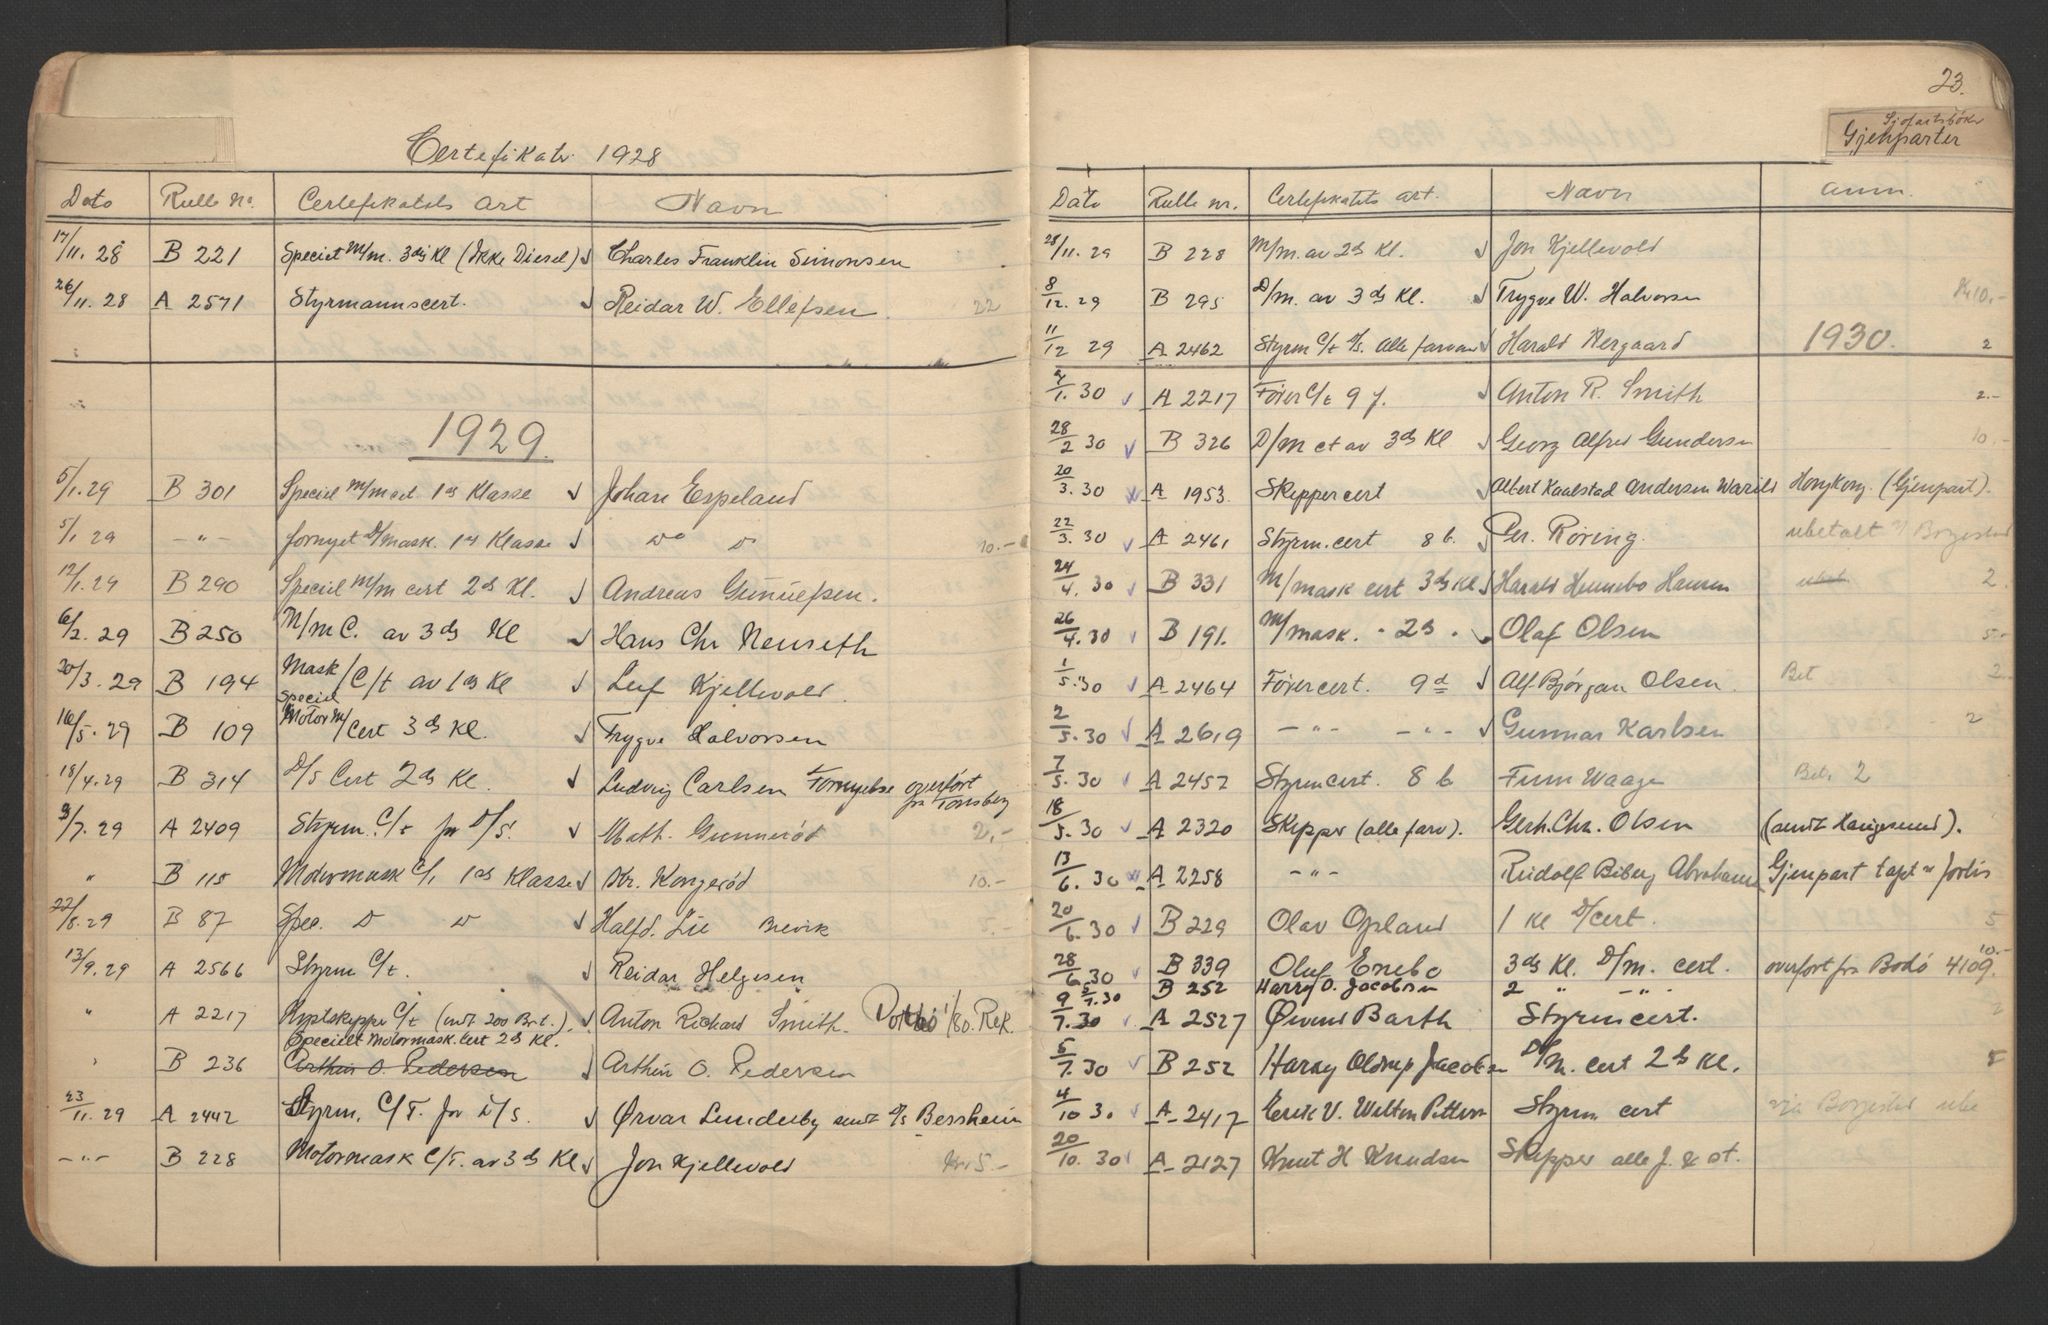 Certefikater 1928
Dato Rulle No. Certefikatets art Navn
17/11. 28 B 221 Speciet M/m. 3dj Kl (Ikke Diesel) Charles Franklin Simonsen
26/11. 28 A 2571 Styrmannscert. Reidar W. Ellefsen. 22
1929.
5/1. 29 B 301 Speciel M/m 1ste Klasse Johan Espeland
5/1 29 -"- fornyet D/mask. 1ste Klasse do do 10.-
12/1. 29 B 290 Speciel M/m cert 2dj Kl. Andreas
6/2. 29 B 250 M/m C. av 3dj Kl Hans Chr Neuseth
20/3. 29 B 194 Mask/C/t av 1ste Kl Leif Kjellevold
16/5. 29 B 109 Speciel Motor M/Cert 3dj Kl. Trygve Halvorsen
18/4. 29 B 314 D/S Cert 2dj Kl. Ludvig Carlsen Fornyelse overført fra Tønsberg
3/7. 29 A 2409 Styrm. C/t for D/S. Math. Gunnerød 2,-
" B 115 Motormask C/t 1ste Klasse Kr. Kongerød 10.-
22/8. 29 B 87 Spec. D D Halfd. Lie Brevik 5.-
13/9. 29 A 2566 Styrm C/t. Reidar Helgesen
" A 2217 Kystskipper C/t (indt 200 Brt.). Anton Richard Smith. 1/80. Rek.
" B 236 Specielt Motormask. Cert 2dj Kl. Arthur O. Pedersen Arthur O. Pedersen
23/11. 29 A 2442 Styrm. C/T. for D/S. Ørvar Lunderby sendt D/S Bessheim
-"- B 228 Motormask C/T. av 3dj Kl Jon Kjellevold Kr 5-
23.
Sjøfartsbøker
Gjenparter
Dato Rulle nr. Certefikatets art. Navn Anm.
28/11. 29 B 228 M/m. av 2dj Kl. Jon Kjellevold
8/12. 29 B 295 D/m. av 3dj Kl. Trygve W. Halvorsen 10.-
11/12 29 A 2462 Styrm C/t D/S. alle farvann Harald Nergaard 1930. 2
9/1. 30 A 2217 Fører C/t 9 f. Anton R. Smith 2.-
28/2 30 B 326 D/m ct av 3dj Kl Georg Alfred Gundersen 10.-
20/3. 30 A 1953. Skippercert Albert Kaalstad Andersen Hongkong. (Gjenpart).
22/3. 30 A 2461 Styrm. cert 8 b. Per. Røring. ubetalt Borgestad
24/4. 30 B 331 M/mask cert 3dj Kl Harald Hennebo Hansen 2.
26/4. 30 B 191. M/mask. - 2dj - Olaf Olsen 5.-
1/5. 30 A 2464 Førercert. 9 d Alf Bjørgan Olsen. Bet 2.
2/5. 30 A 2619 -"- -"- Gunnar Karlsen 2
7/5. 30 A 2457 Styrmcert. 8 b. Finn Waage Bet. 2
18/5. 30 A 2320 Skipper (alle farv). Gerh. Chr. Olsen (sendt Haugesund).
13/6. 30 A 2258 -"- Rudolf Biberg Abrahamsen Gjenpart tapt v forlis
20/6. 30 B 229 Olav Opland 1 Kl D/cert. 5
28/6. 30 B 339 Oluf Enebo 3dj Kl. D/m. cert. overført fra Bodø 4109. 10.-
5/7. 30 B 252 Harry O. Jacobsen 2 " -"-
9/7. 30 A 2527 Øivind Barth Styrmcert. 2
5/7. 30 B 252 Harry Oldrup Jacobsen D/m. cert 2dj Kl. 5
4/10 30 A 2417 Erik V. Wilton Styrm cert via Borgestad
20/10. 30 A 2127 Knut H Knudsen Skipper alle f. & st.